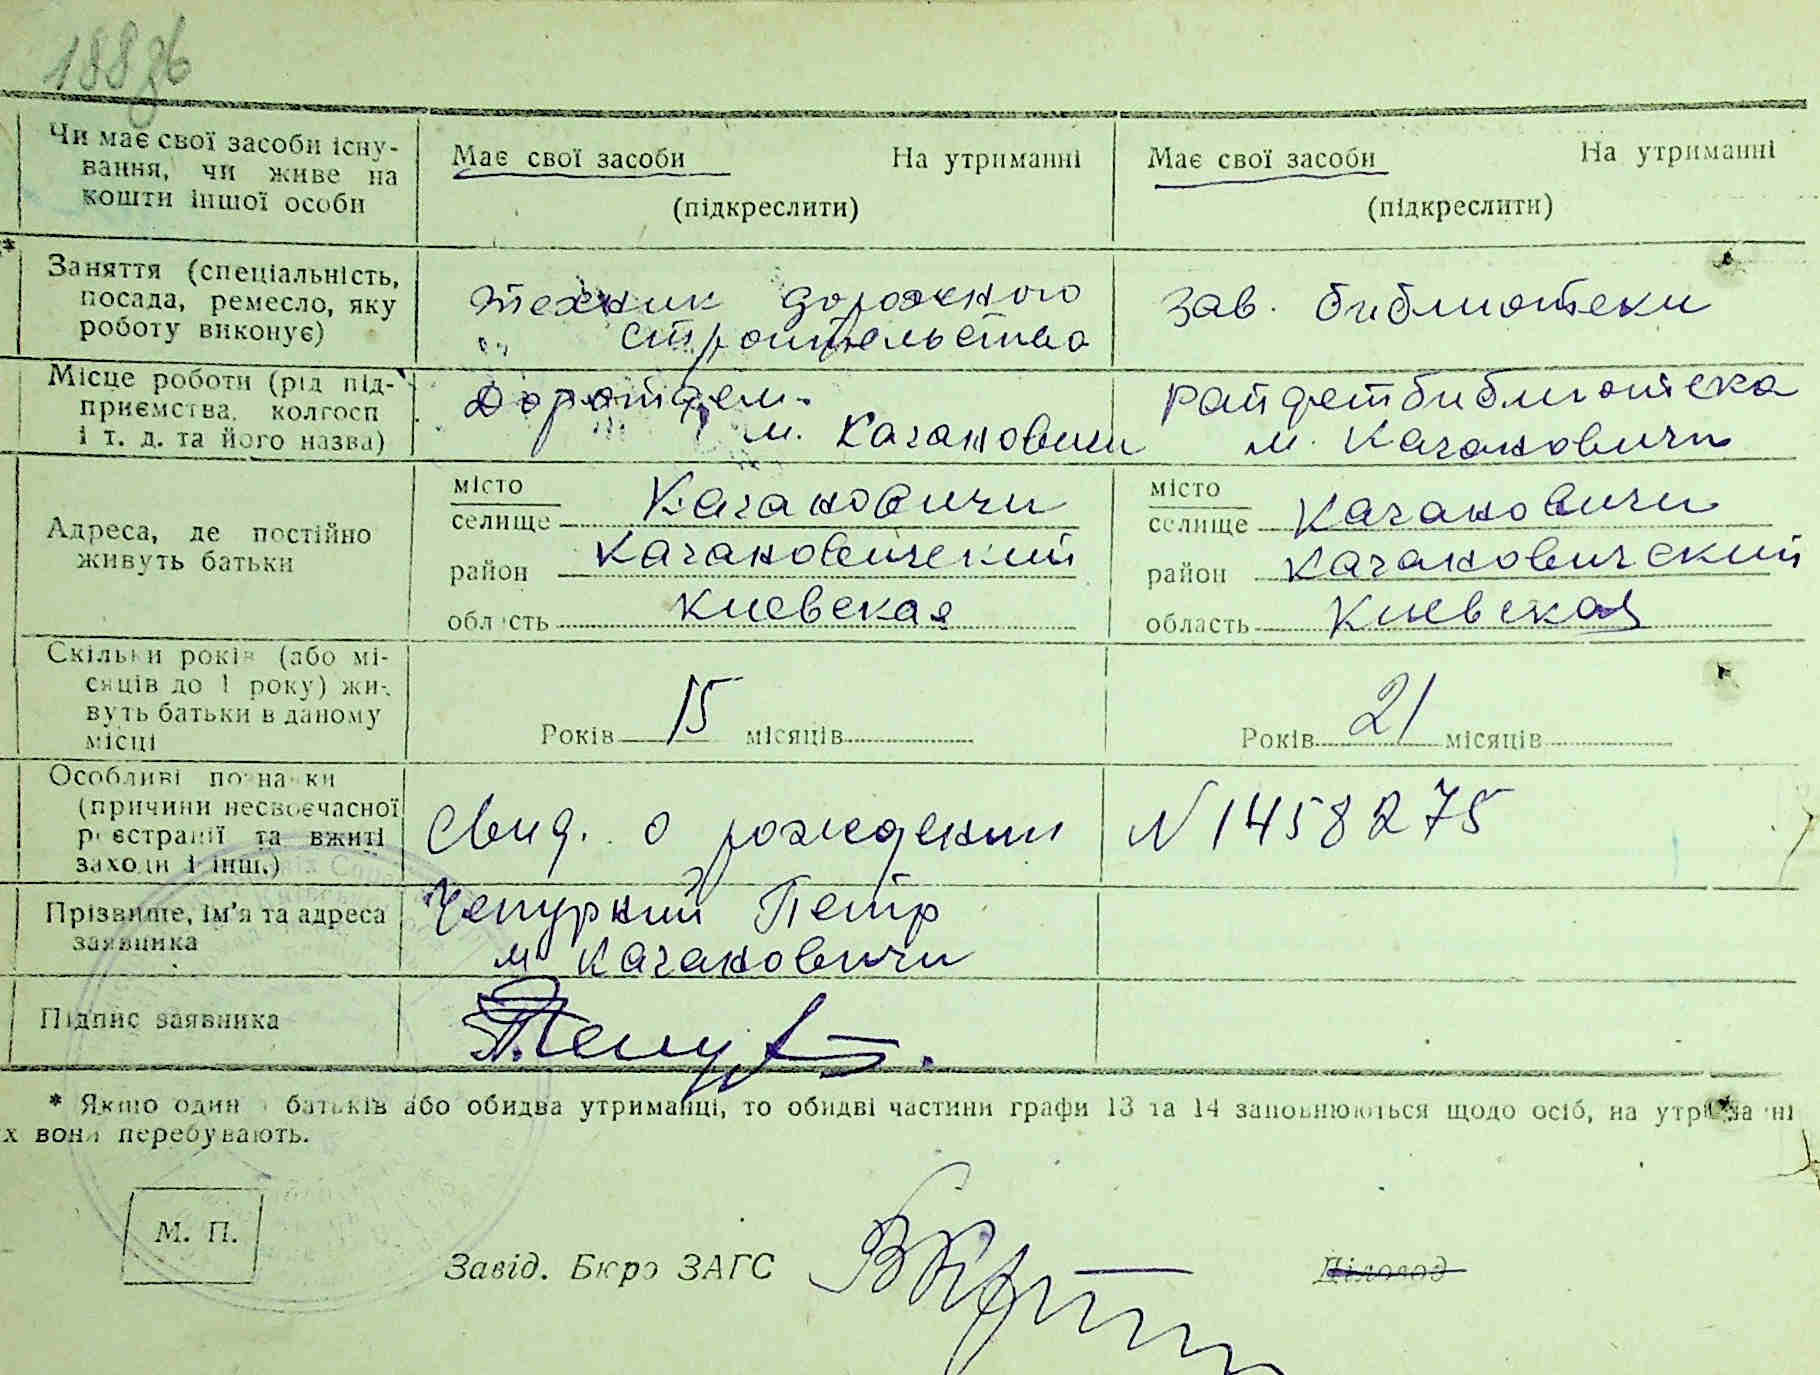 188 зб
Чи має свої засоби існу-
вання, чи живе на
кошти іншої особи
Має свої засоби На утриманні
(підкреслити)
Має свої засоби На утриманні
(підкреслити)
* Заняття (спеціальність,
посада, ремесло, яку
роботу виконує)
техник дорожного
строительства
Зав. библиотеки
Місце роботи (рід під-
приємства, колгосп
і т. д. та його назва)
Доротдел.
м. Кагановичи
Райдетбиблиотека
м. Кагановичи
Адреса, де постійно
живуть батьки
місто
селище Кагановичи
район Кагановичский
область Киевская
місто
селище Кагановичи
район Кагановичский
область Киевская
Скільки років (або мі-
сяців до 1 року) жи-
вуть батьки в даному
місці
Років 15 місяців
Років 21 місяців
Особливі познаки
(причини несвоєчасної
реєстрації та вжиті
заходи і інш.)
Свид. о рождении N 1458275
Прізвище, ім'я та адреса
заявника
Чепуркий Петр
м Кагановичи
Підпис заявника
* Якщо один з батьків або обидва утриманці, то обидві частини графи 13 та 14 заповнюються щодо осіб, на утриманні
х вони перебувають.
М. П.
Завід. Бюро ЗАГС
Діловод